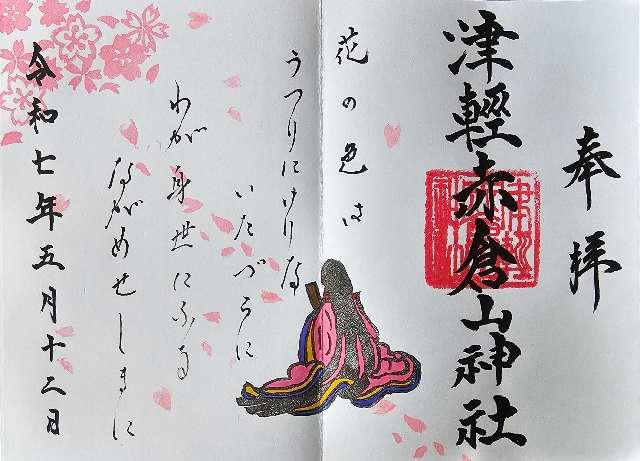 奉拝
津輕赤倉山神社
花の色は
うつりにけりな
いたづらに
わが身世にふる
ながめせしまに
令和七年五月十二日